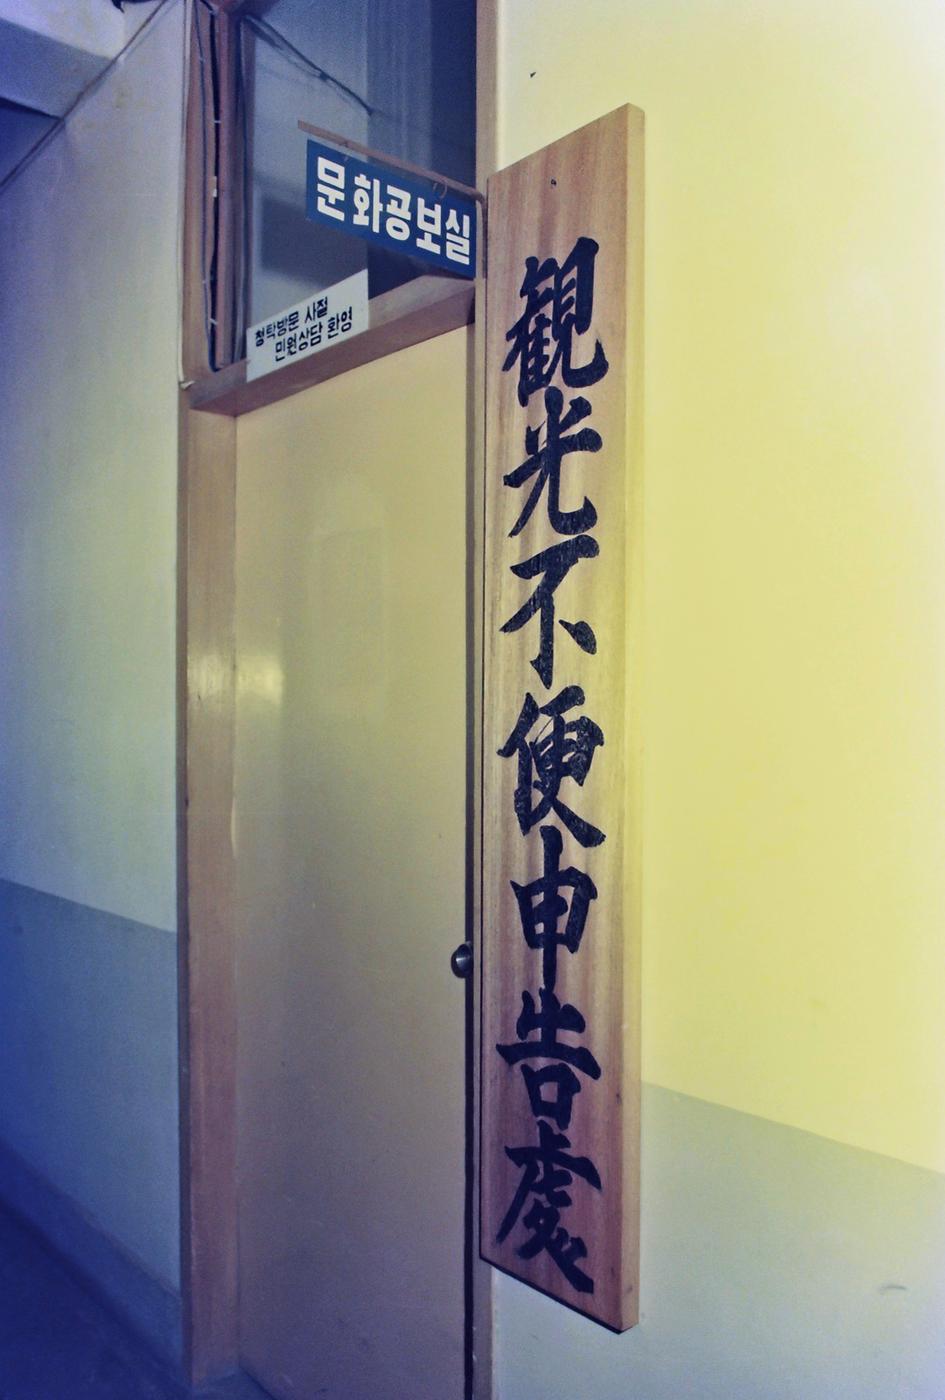 문화공보실
청탁방문 사절
민원상담 환영
観光不便申告處